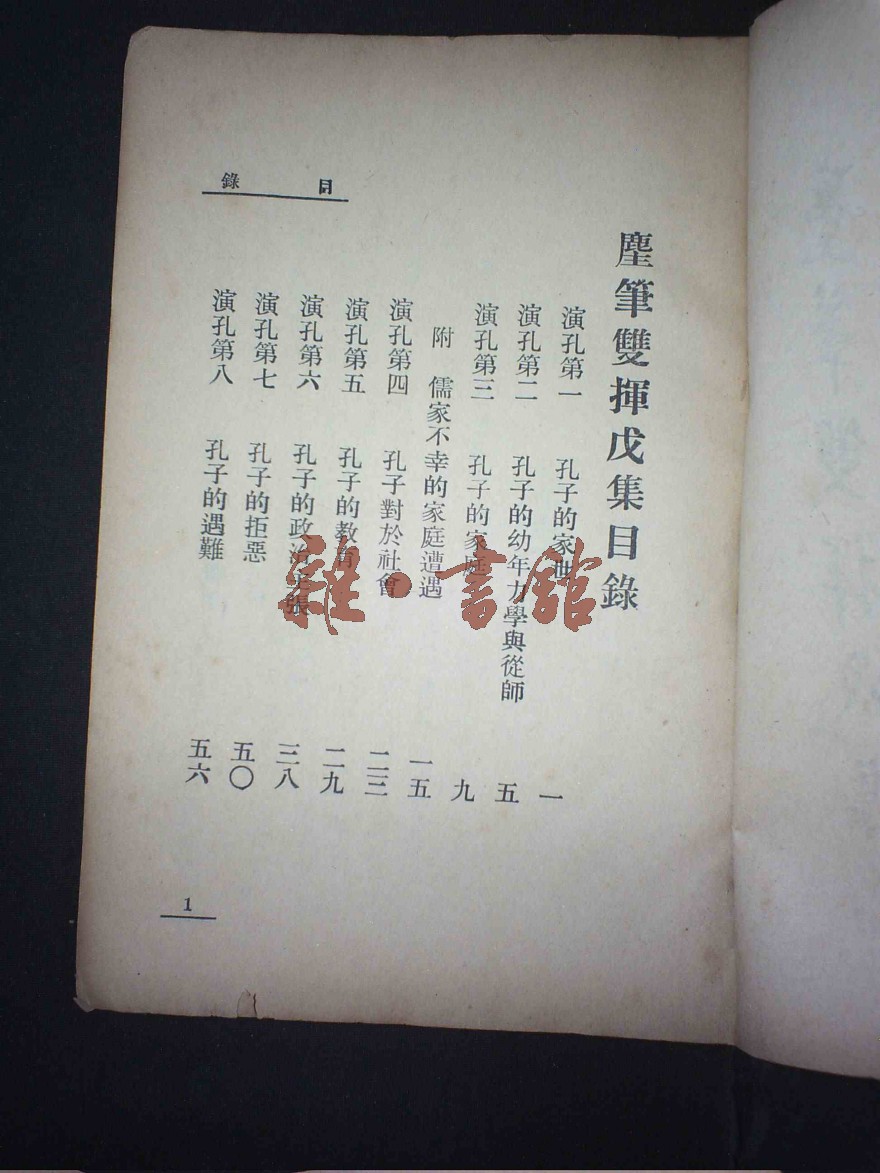 目錄
麈筆雙揮戊集目錄
演孔第一 孔子的家世 一
演孔第二 孔子的幼年力學與從師 五
演孔第三 孔子的家庭 九
附 儒家不幸的家庭遭遇 一五
演孔第四 孔子對於社會 二三
演孔第五 孔子的教育 二九
演孔第六 孔子的政治主張 三八
演孔第七 孔子的拒惡 五〇
演孔第八 孔子的遇難 五六
1
雜·書館